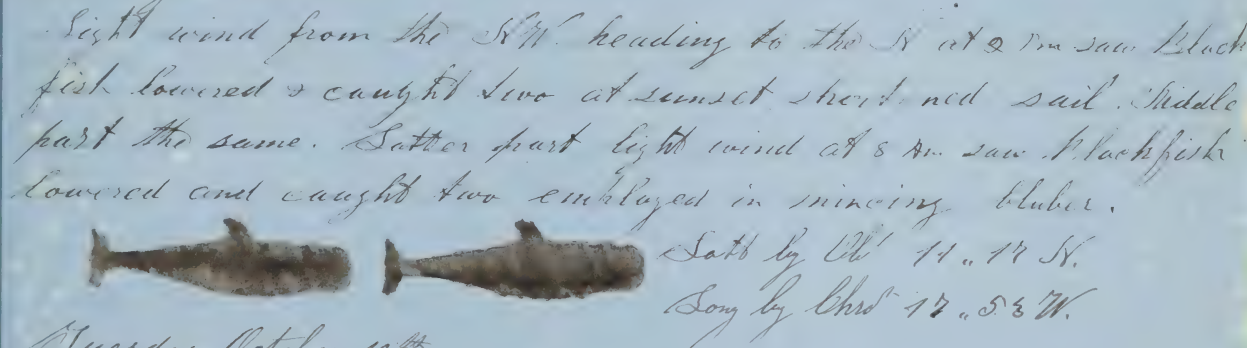 Light wind from the NW. heading to the N at 2 Pm saw Black
fish lowered & caught two at sunset shortned sail. Middle
part the same. Latter part light wind at 8 Am saw Blackfish
lowered and caught two employed in mincing bluber.
Latt by Ob 11,, 17 N.
Long by Chro 17,, 53 W.
Tuesday October